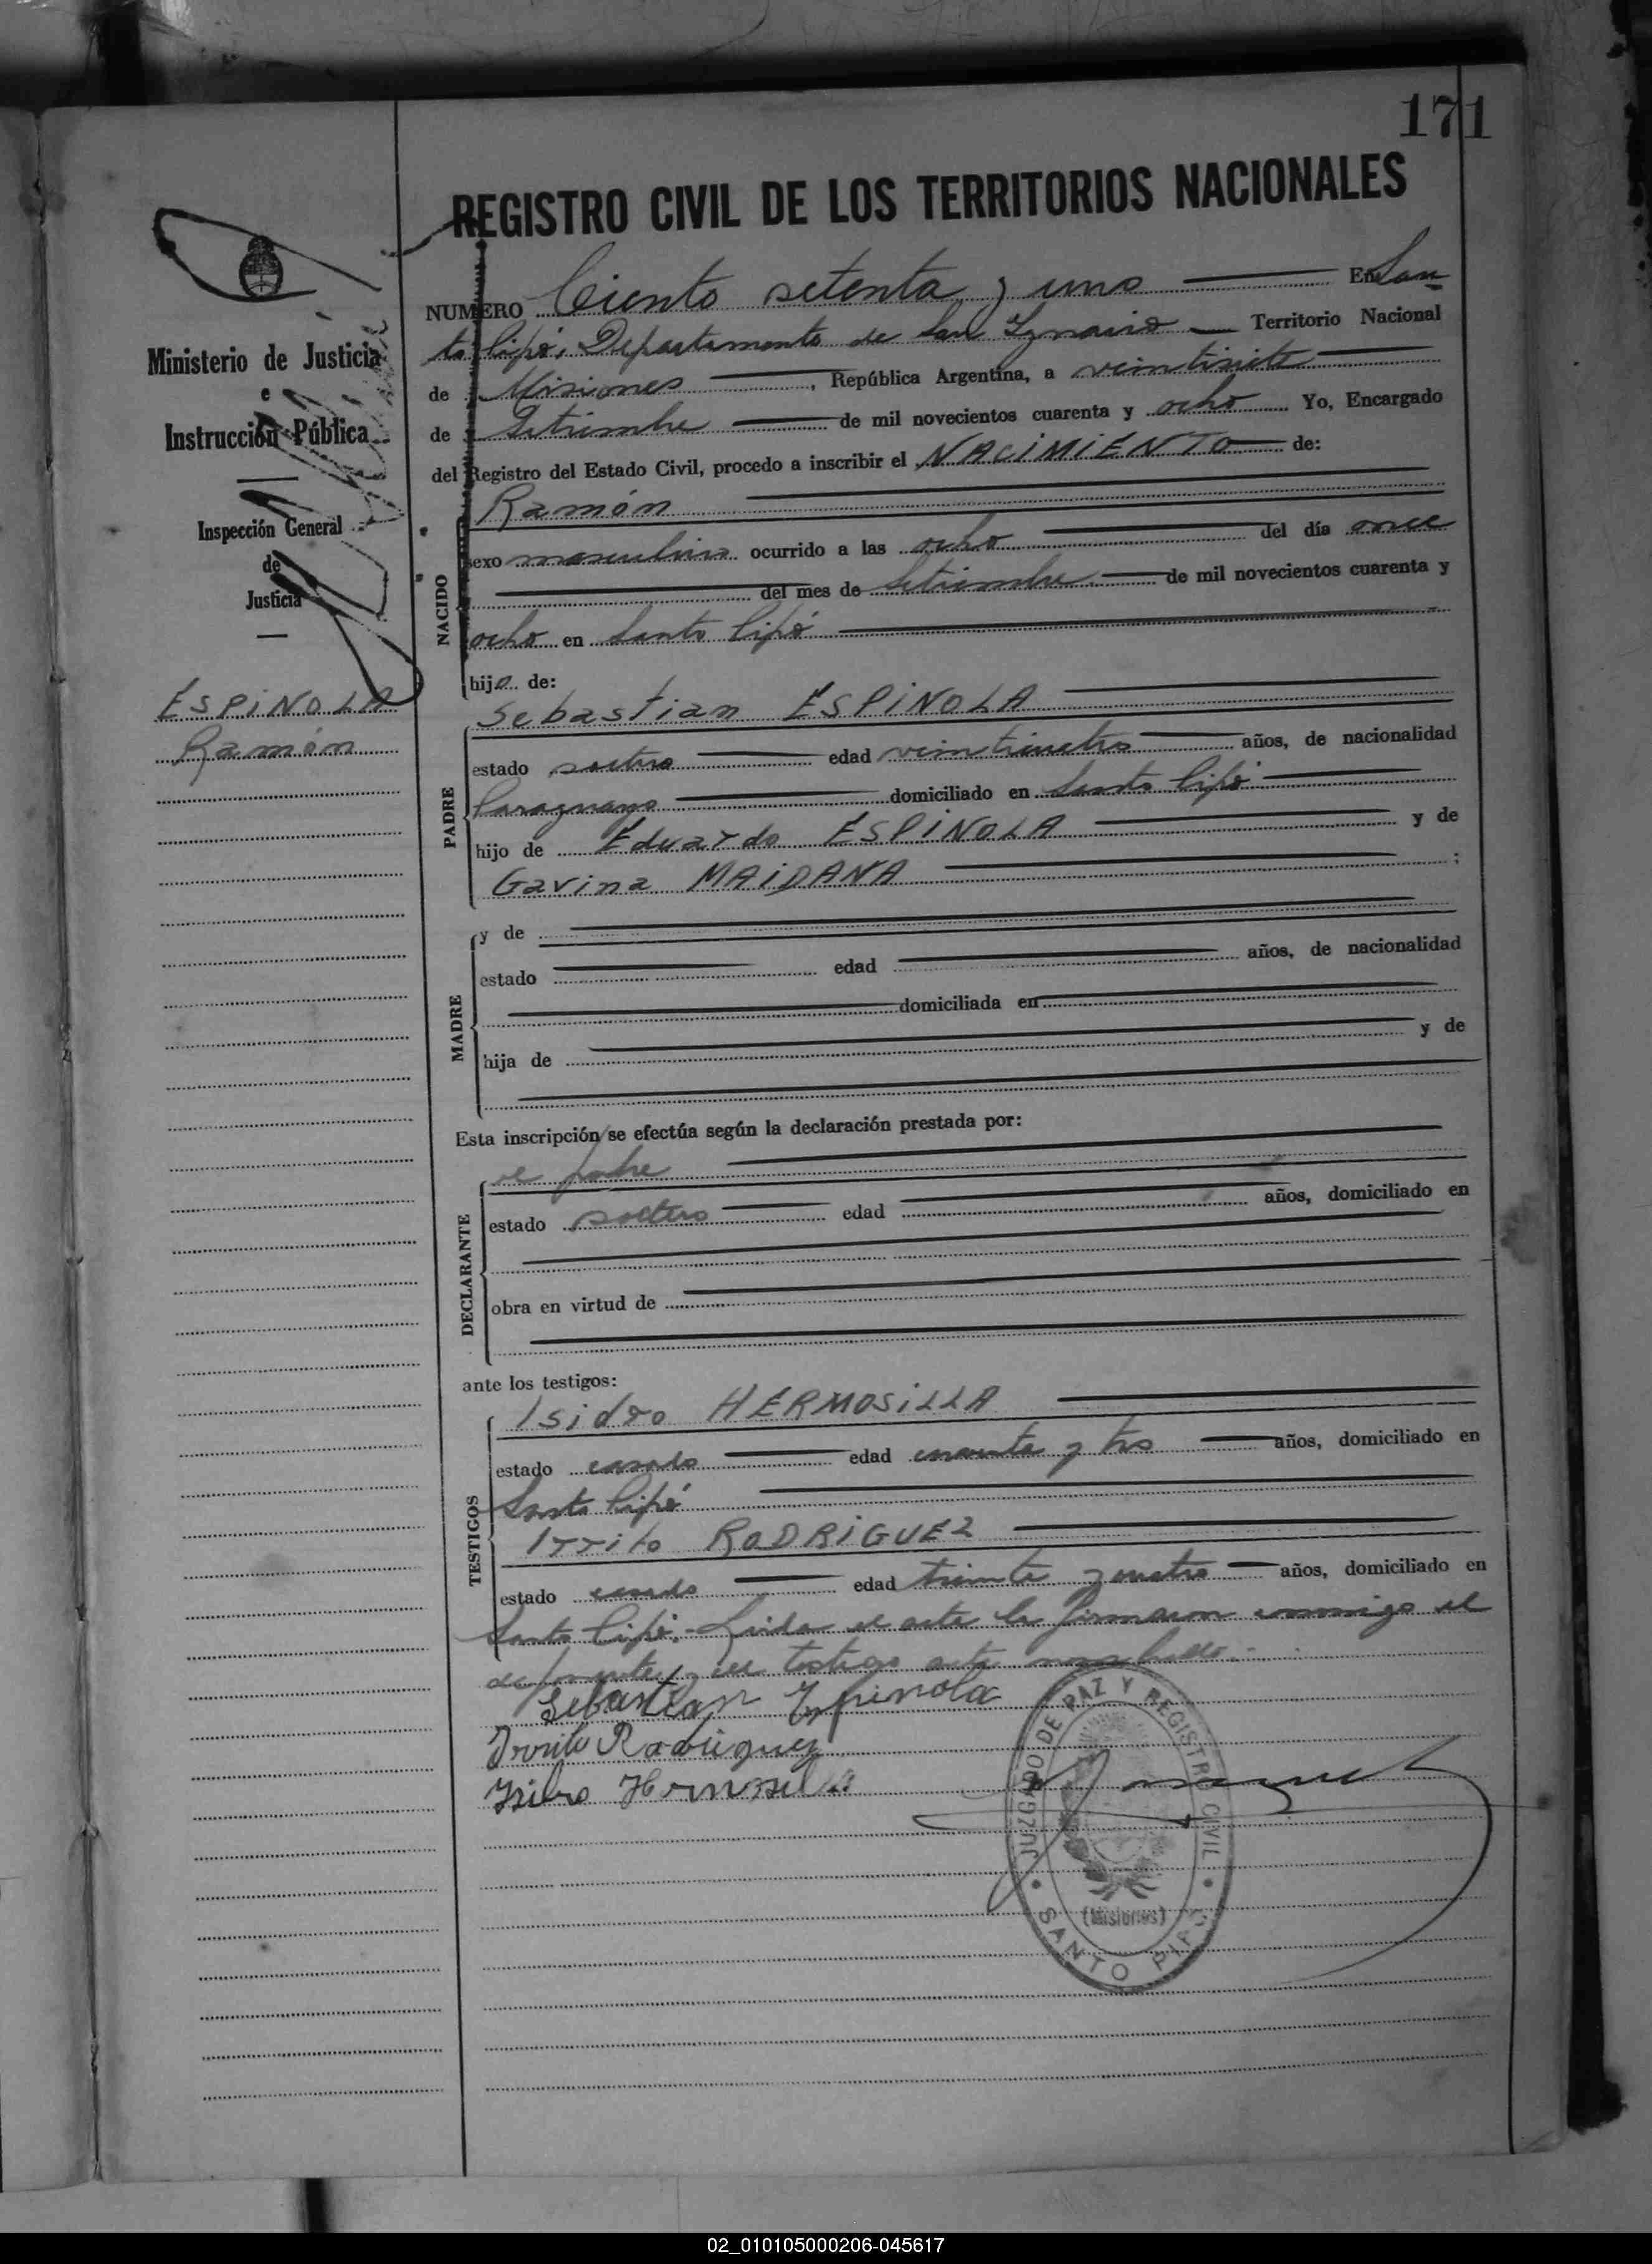 171
REGISTRO CIVIL DE LOS TERRITORIOS NACIONALES
Ministerio de Justicia
e
Instrucción Pública
Inspección General
de
Justicia
ESPINOLA
Ramón
NUMERO Ciento setenta y uno En San-
to Pipó, Departamento de San Ygnacio Territorio Nacional
de Misiones, República Argentina, a veintisiete
de Setiembre de mil novecientos cuarenta y ocho Yo, Encargado
del Registro del Estado Civil, procedo a inscribir el NACIMIENTO de:
NACIDO
Ramón
sexo masculino ocurrido a las ocho del día once
del mes de Setiembre de mil novecientos cuarenta y
ocho en Santo Pipó
hijo de:
PADRE
Sebastian ESPINOLA
estado soltero edad veinticuatro años, de nacionalidad
Paraguayo domiciliado en Santo Pipó
hijo de Eduardo ESPINOLA y de
Gavina MAIDANA ;
MADRE
y de
estado edad años, de nacionalidad
domiciliada en
hija de y de
Esta inscripción se efectúa según la declaración prestada por:
DECLARANTE
el padre
estado soltero edad años, domiciliado en
obra en virtud de
ante los testigos:
TESTIGOS
Isidro HERMOSILLA
estado casado edad cuarenta y tres años, domiciliado en
Santo Pipó
Irrito RODRIGUEZ
estado casado edad treinta y cuatro años, domiciliado en
Santo Pipó.- Leida el acta la firmaron conmigo el
declarante y los testigos ante nombrados.-
Sebastian Espinola
Irrito Rodriguez
Isidro Hermosilla
JUZGADO DE PAZ Y REGISTRO CIVIL
(Misiones)
SANTO PIPÓ
02_010105000206-045617